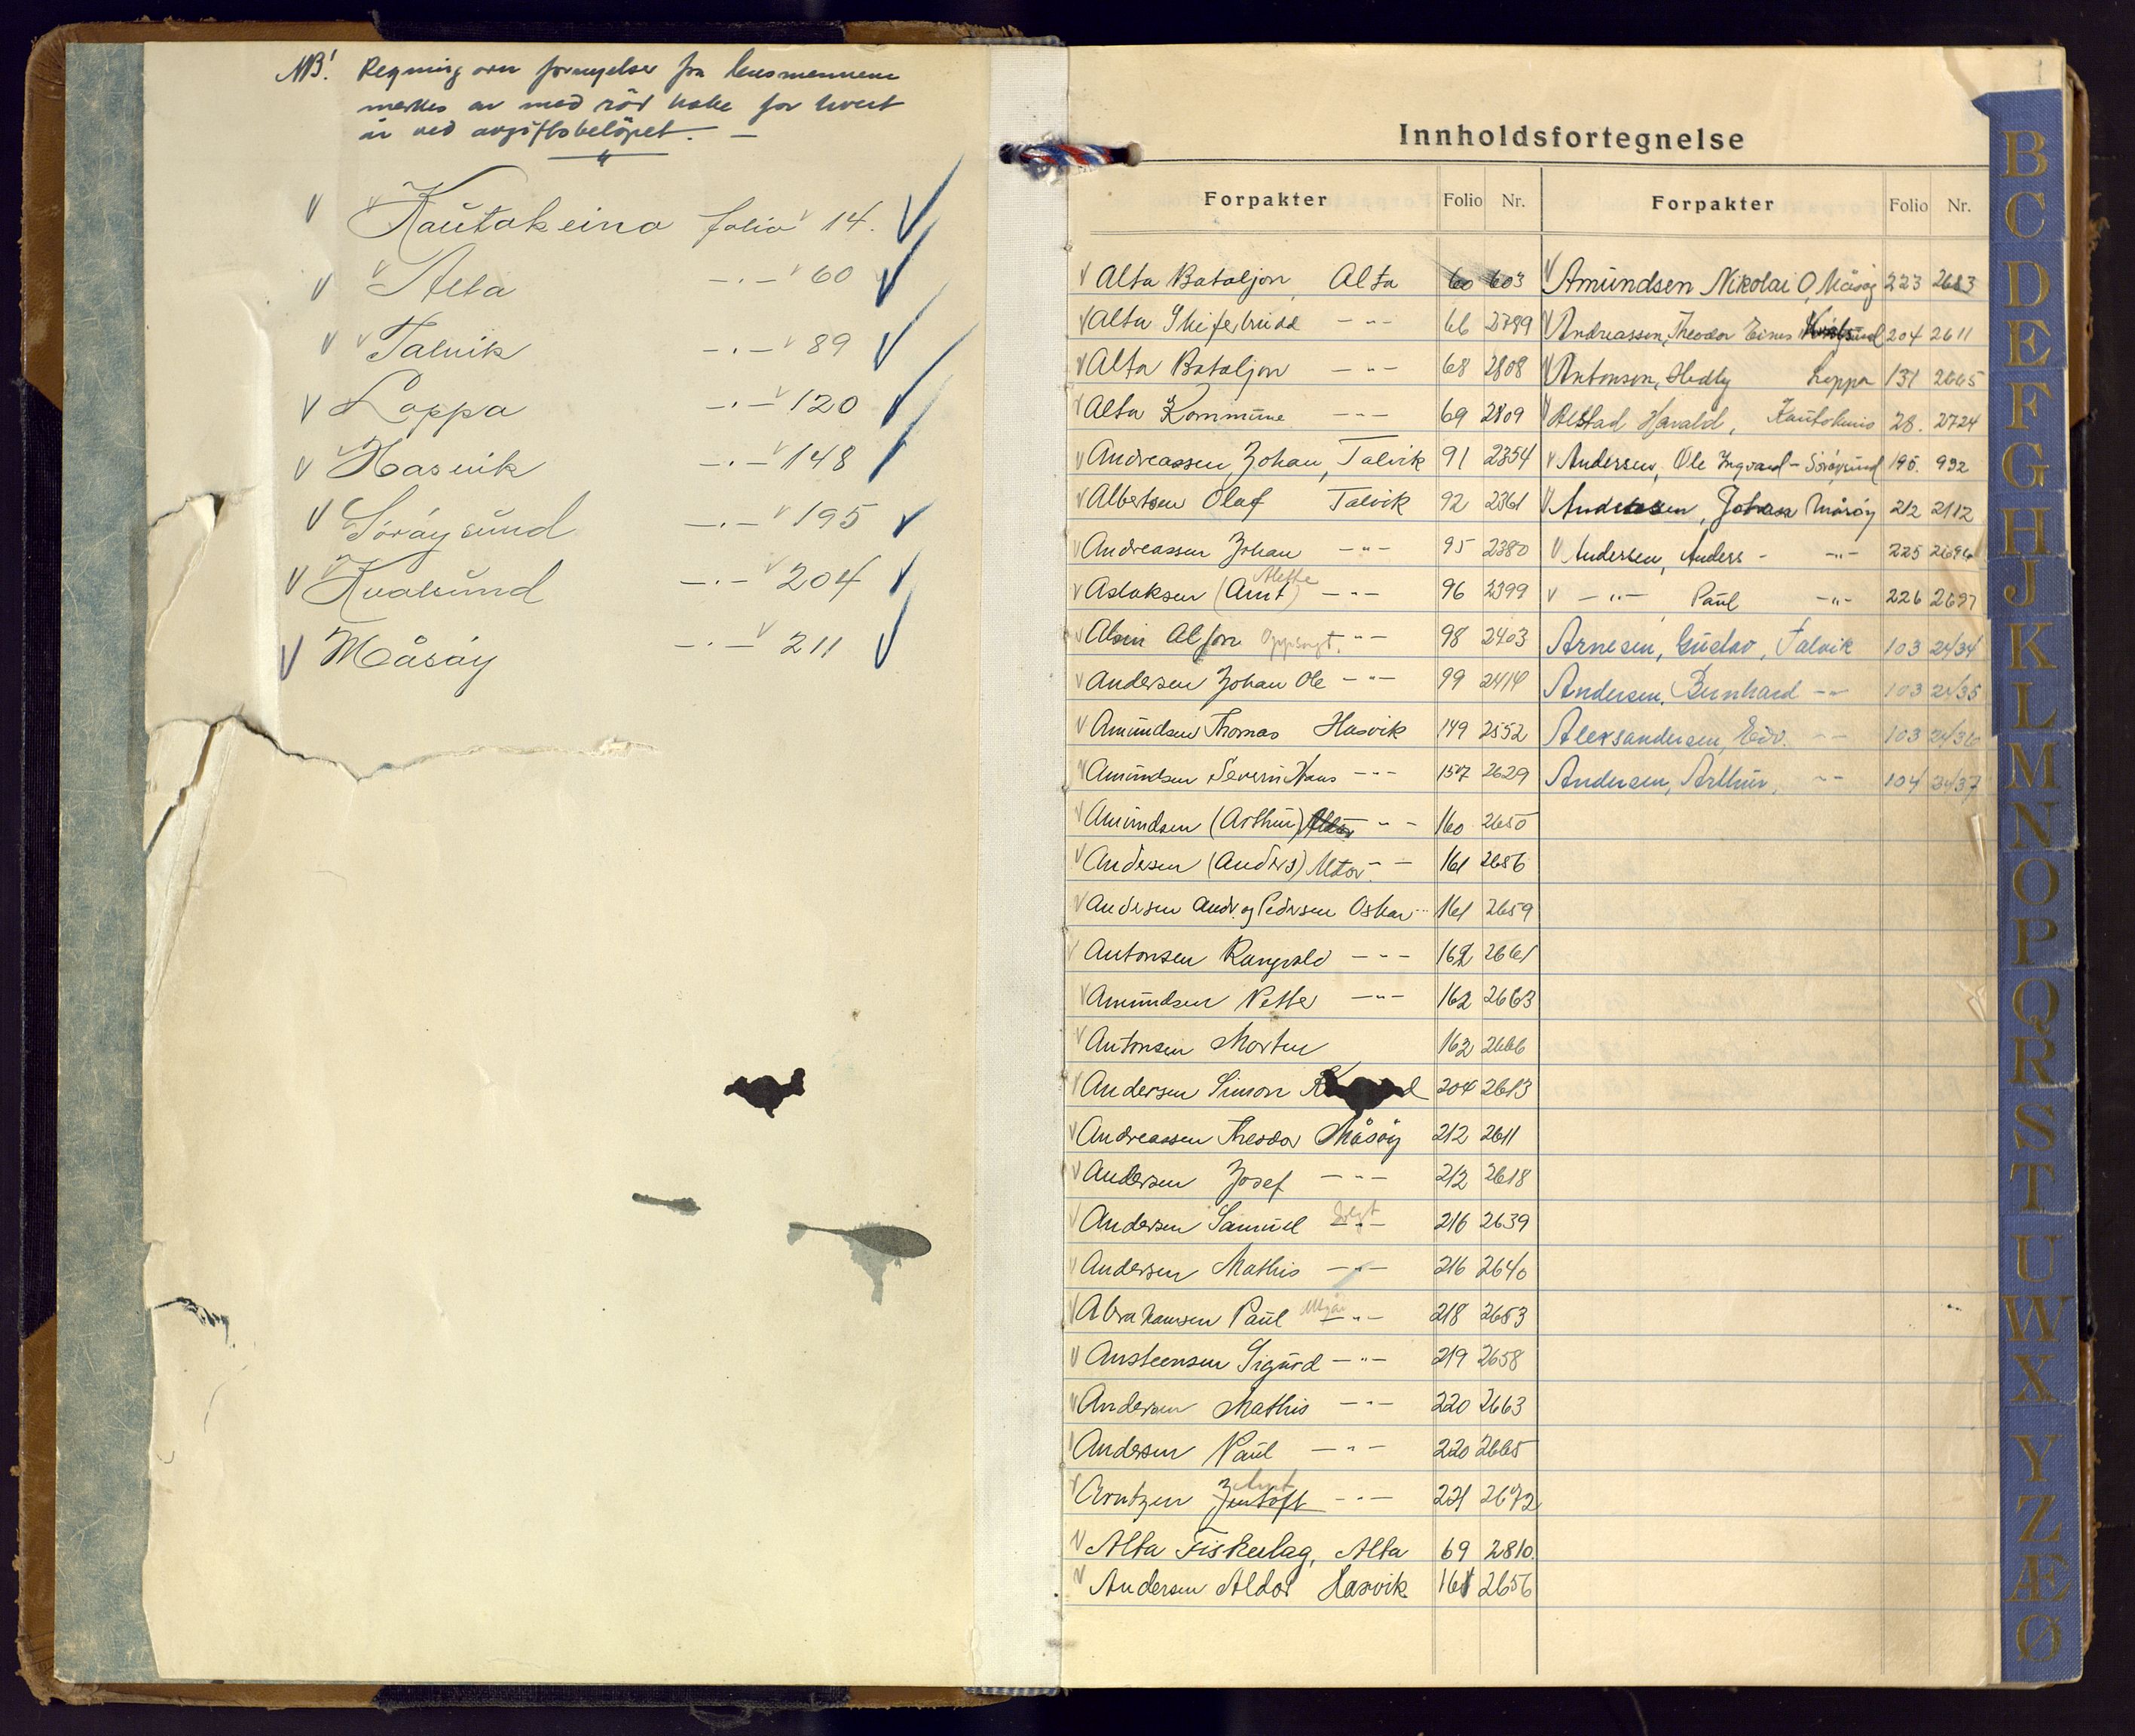 NB! Regning over fornyelser fra lensmennene
merkes av med rød hake for hvert
år ved avgiftsbeløpet. —
Kautokeino folio 14.
Alta —.— 60
Talvik —.— 89
Loppa —.— 120
Hasvik —.— 148
Sørøysund —.— 195
Kvalsund —.— 204
Måsøy —.— 211
Innholdsfortegnelse
Forpakter Folio Nr. Forpakter Folio Nr.
Alta Bataljon, Alta 60 603
Alta Skiferbrudd —"— 66 2799
Alta Bataljon —"— 68 2808
Alta Kommune —"— 69 2809
Andreassen Johan, Talvik 91 2354
Albertsen Olaf Talvik 92 2361
Andreassen Johan —"— 95 2380
Aslaksen (Amt) Alette —"— 96 2399
Alsin Alfon Oppsagt. —"— 98 2403
Andersen Johan Ole —"— 99 2414
Amundsen Thomas Hasvik 149 2552
Amundsen Severin Hans —"— 157 2629
Amundsen (Arthur) Aldor —"— 160 2650
Andersen (Anders) —"— 161 2656
Andersen Andr. og Pedersen Oskar —"— 161 2659
Antonsen Rangvald —"— 162 2661
Amundsen Petter —"— 162 2663
Antonsen Morten 162 2666
Andersen Simon 204 2613
Andreassen Theodor Måsøy 212 2611
Andersen Josef —"— 212 2618
Andersen Samuel —"— 216 2639
Andersen Mathis —"— 216 2640
Abrahamsen Paul —"— 218 2653
Austeensen Sigurd —"— 219 2658
Andersen Mathis —"— 220 2663
Andersen Paul —"— 220 2665
Arntzen Jentoft —"— 221 2672
Alta Fiskerlag, Alta 69 2810.
Andersen Aldor Hasvik 161 2656
Amundsen Nikolai O, Måsøy 223 2683
Andreassen, Theodor Einar Kvalsund 204 2611
Antonsen, Hedly Loppa 131 2665
Alstad Harald, Kautokeino 28. 2724
Andersen, Ole Ingvard - Sørøysund 195. 992
Andersen, Johan Måsøy 212 2182
Andersen, Anders - —"— 225 2696
—"— Paul —"— 226 2697
Arnesen, Gustav, Talvik 103 2434
Andersen, Bernhard —"— 103 2435
Aleksandersen, Edv. —"— 103 2436
Andersen, Arthur, —"— 104 2437
B
C
D
E
F
G
H
J
K
L
M
N
O
P
Q
R
S
T
U
W
X
Y
Z
Æ
Ø